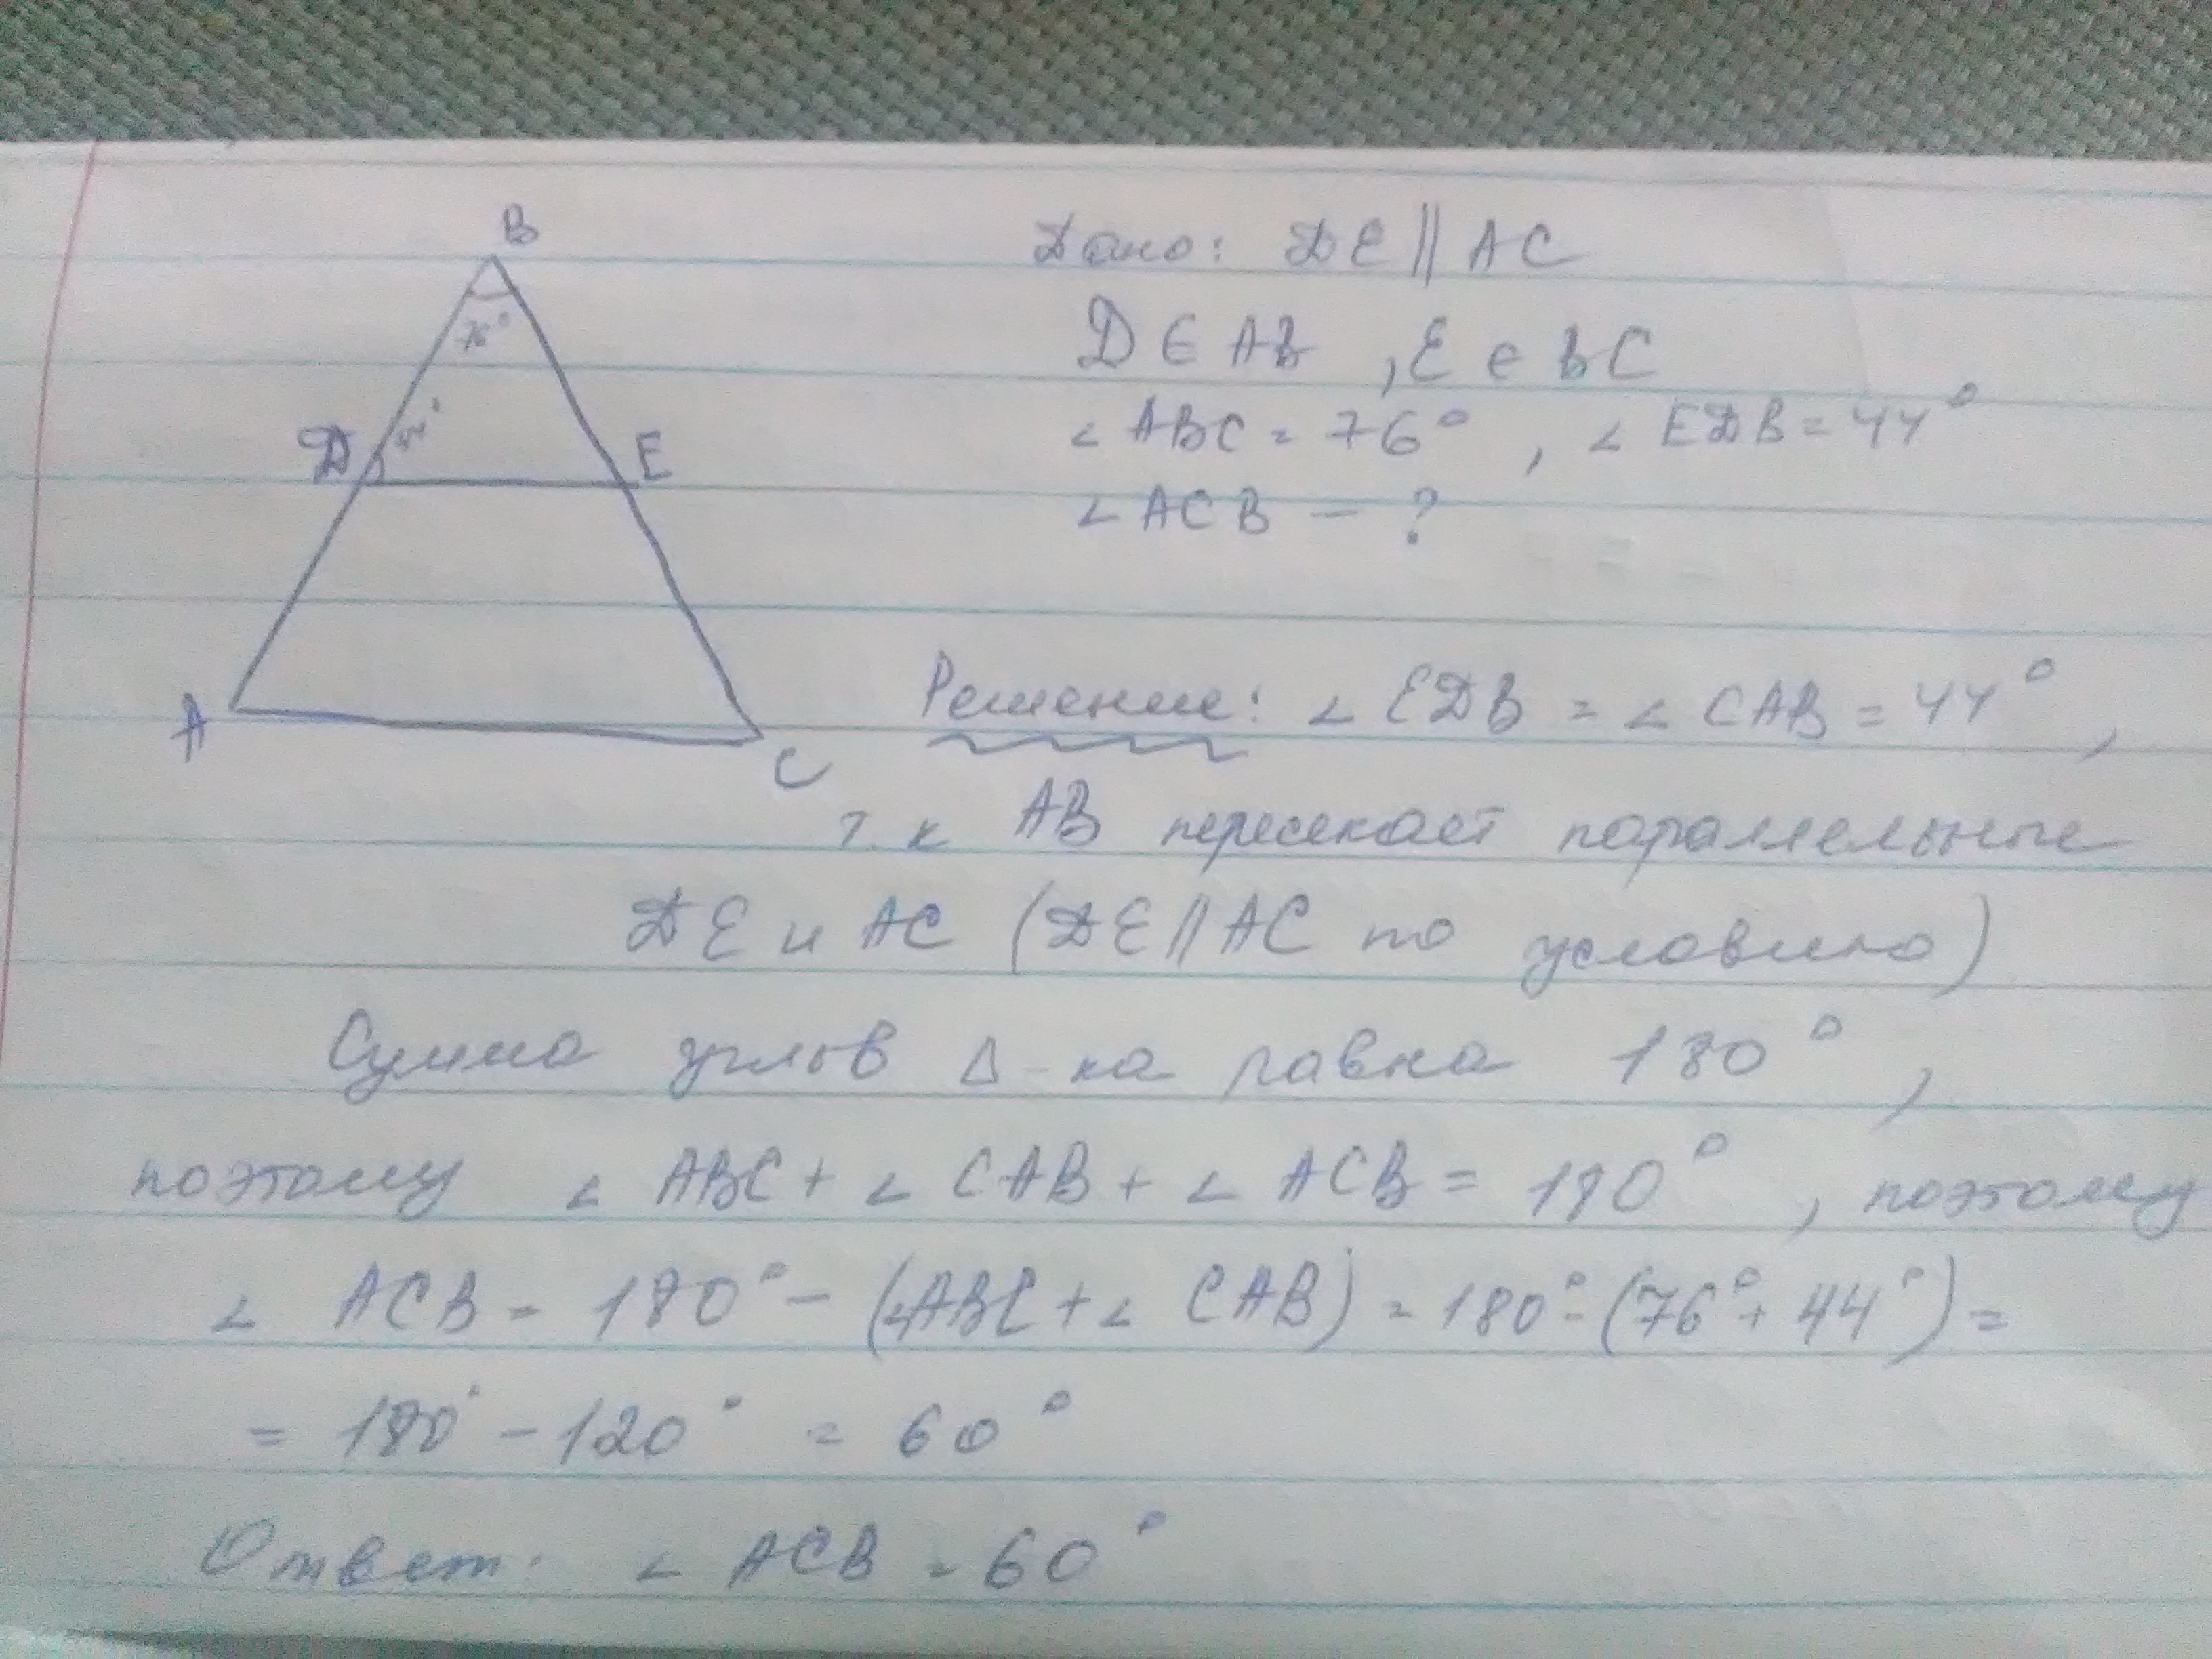 B
76°
44°
D
E
A
C
Дано: DE || AC
D ∈ AB, E ∈ BC
∠ ABC = 76°, ∠ EDB = 44°
∠ ACB — ?
Решение: ∠ EDB = ∠ CAB = 44°,
т.к AB пересекает параллельные
DE и AC (DE || AC по условию)
Сумма углов Δ-ка равна 180°,
поэтому ∠ ABC + ∠ CAB + ∠ ACB = 180°, поэтому
∠ ACB = 180° - (∠ABC + ∠ CAB) = 180° - (76° + 44°) =
= 180° - 120° = 60°
Ответ: ∠ ACB = 60°